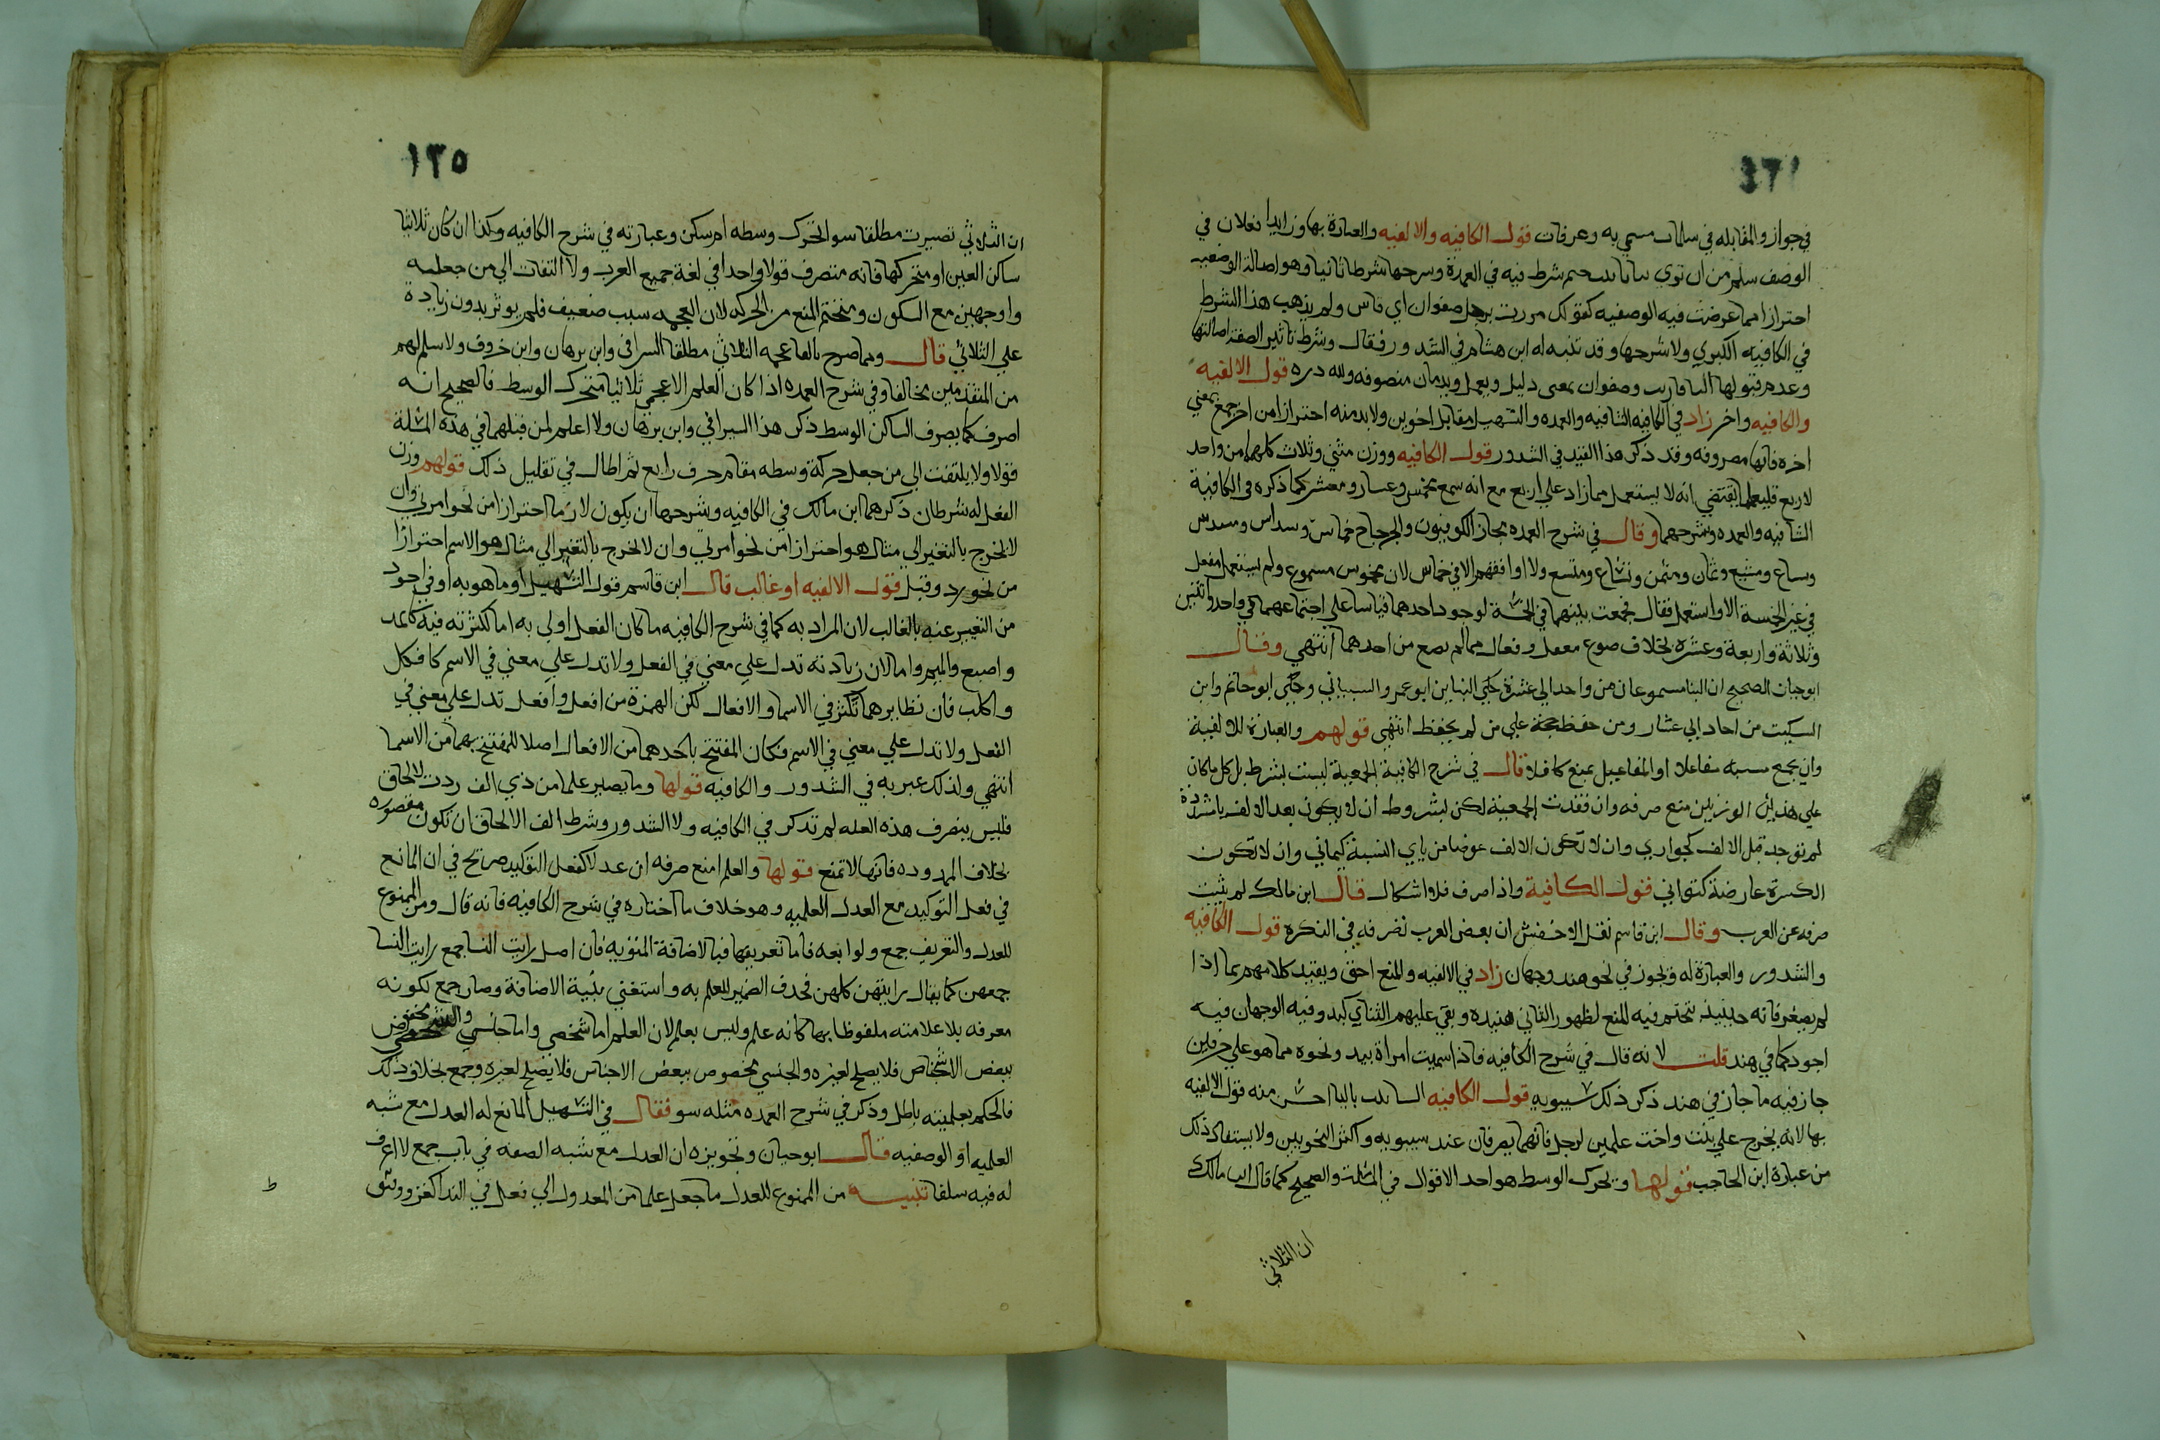 ١٣٤
في جواز والمقابله في سلمات مسمي به وعرفات قول الكافيه والالفيه والعبارة بها وزايدا فعلان في
الوصف سلم من ان شرط فيه في العمدة وشرحها شرطا ثانيا وهو اصالة الوصفيه
احترازا مما عرضت فيه الوصفيه كقولك مررت برجل صفوان اي قاس ولم يذهب هذا الشرط
في الكافيه الكبري ولا شرحها وقد تنبه له ابن هشام في الشد ور فقال وشرط تاثير الصفة اصالتها
وعدم قبولها التا وصفوان بمعنى ذليل ويعمل وندمان منصرفه ولله دره قول الالفيه
والكافيه واخر زاد في الكافيه الشافيه والعمده والتسهيل مقابل اخرين ولا بد منه احترازا من اخر جمع بمعني
اخره فانها مصروفه وقد ذكر هذا القيد في الشدور قول الكافيه ووزن مثني وثلاث كلهما من واحد
لاربع فليعلما يقتضي انه لا يستعمل مما زاد علي اربع مع انه سمع مخمس وعشار ومعشر كما ذكره في الكافية
الشافيه والعمده وشرحهما وقال في شرح العمده بجاز الكوفيون والزجاج خماس وسداس ومسدس
وسباع ومسبع وثمان ومثمن وتساع ومتسع ولا اوافقهم الا في خماس لان مخمس مسموع ولم يستعمل مفعل
في غير الخمسة الا واستعمل فعال فجمعت بينهما في الخمسة لوجود احدهما قياسا علي اجتماعهما في واحد واثنين
وثلاثة واربعة وعشره بخلاف صوغ مفعل وفعال مما لم يصغ من احدهما انتهي وقال
ابو حيان الصحيح ان البنا مسموعان من واحد الي عشرة حكي البنا ين ابو عمرو الشيباني وحكى ابو حاتم وابن
السكيت من احاد الي عشار ومن حفظ حجة علي من لم يحفظ انتهى قولهم والعبارة للالفية
وان يجمع مشبه مفاعلا او المفاعيل بمنع كافلا قال في شرح الكافية الجمعية ليست بشرط بل كل ما كان
علي هذين الوزنين منع صرفه وان فقدت الجمعية لكن بشروط ان لا يكون بعد الالف يا مشددة
لم توجد قبل الالف كجواري وان لا تكون الالف عوضا من ياي النسبة كيماني وان لا تكون
الكسرة عارضة كتواني قول الكافية واذا صرف فلا اشكال قال ابن مالك لم يثبت
صرفه عن العرب وقال ابن قاسم نقل الاخفش ان بعض العرب تصرفه في النكرة قول الكافيه
والشدور والعبارة له ويجوز في نحو هند وجهان زاد في الالفيه والمنع احق ويقيد كلامهم بما اذا
لم يصغر فانه حينيذ يتحتم فيه المنع لظهور التاني هنيده وبقي عليهم الثناي كيد وفيه الوجهان فيه
اجود كما في هند قلت لانه قال في شرح الكافيه فاذا سميت امراة بيد ونحوه مما هو علي حرفين
جاز فيه ما جاز في هند ذكر ذلك سيبويه قول الكافيه باليا احسن منه قول الالفيه
بها لانه يخرج علي بنت واخت علمين لرجل فانهما يصرفان عند سيبويه واكثر النحويين ولا يستفاد ذلك
من عبارة ابن الحاجب قولها وتحرك الوسط هو احد الاقوال في المسئلة والصحيح كما قال ابن مالك
ان الثلاثي
١٣٥
ان الثلاثي تصيرت مطلقا سوا تحرك وسطه ام سكن وعبارته في شرح الكافيه وكذا ان كان ثلاثيا
ساكن العين او متحركها فانه منصرف قولا واحدا في لغة جميع العرب ولا التفات الي من جعله
واوجهين مع السكون ومتحتم المنع مع الحركه لان العجمه سبب ضعيف فلم يوثر بدون زيادة
علي الثلاثي قال ومما صرح بالغا عجمه الثلاثي مطلقا السيرافي وابن برهان وابن خروف ولا سلم لهم
من المتقدمين مخالفا وفي شرح العمده اذا كان العلم الاعجمي ثلاثيا متحرك الوسط فالصحيح انه
اصرف كما يصرف الساكن الوسط ذكر هذا السيرافي وابن برهان ولا اعلم لمن قبلهما في هذه المسئلة
قولا ولا يلتفت الي من جعل حركة وسطه مقام حرف رابع ثم اطال في تعليل ذلك قولهم وزن
الفعل له شرطان ذكرهما ابن مالك في الكافيه وشرحها ان يكون لازما احترازا من نحو امرئ وان
لا يخرج بالتغير الي مثال هو احترازا من نحو امرئ وان لا يخرج بالتغير الي مثال هو الاسم احترازا
من نحو رد وقيل قول الالفيه او غالب قال ابن قاسم قول التسهيل او ما هو به اوفي اجود
من التعبير عنه بالغالب لان المراد به كما في شرح الكافيه ما كان الفعل اولى به اما لكثرته فيه كاثمد
واصبع وابلم واما لان زيادته تدل علي معني في الفعل ولا تدل علي معني في الاسم كافكل
واكلب فان نظايرهما تكثر في الاسما والافعال لكن الهمزة من افعل وافعل تدل علي معني في
الفعل ولا تدل علي معني في الاسم فكان المفتتح باحدهما من الافعال اصلا للمفتتح بهما من الاسما
انتهي ولذلك عبر به في الشدور والكافيه قولها وما يصير علما من ذي الف زيدت لالحاق
فليس ينصرف هذه العله لم تذكر في الكافيه ولا الشدور وشرط الف الالحاق ان تكون مقصوره
بخلاف الممدوده فانها لا تمنع قولها والعلم امنع صرفه ان عدلا كفعل التوكيد صريح في ان المانع
في فعل التوكيد مع العدل العلميه وهو خلاف ما اختاره في شرح الكافيه فانه قال ومن الممنوع
للعدل والتعريف جمع ولوابعه فاما تعريفها فبالاضافة المنويه فان اصل رايت النسا جمع رايت النسا
جمعهن كما يقال رايتهن كلهن فحذف الضمير للعلم به واستغني بنية الاضافة وصار جمع لكونه
معرفه بلا علامته ملفوظا بها كانه علم وليس بعلم لان العلم اما شخصي واما جنسي والشخصي
ببعض الاشخاص فلا يصلح لغيره والجنسي مخصوص ببعض الاجناس فلا يصلح لغيره وجمع بخلاف ذلك
فالحكم بعلميته باطل وذكر في شرح العمده مثله سوا فقال في التسهيل المانع له العدل مع شبه
العلميه او الوصفيه قال ابو حيان وتجويزه ان العدل مع شبه الصفه في باب جمع لا اعرف
له فيه سلفا تنبيه من الممنوع للعدل ما جعل علما من المعدول الي فعل في الندا كغدر وفسق
ط